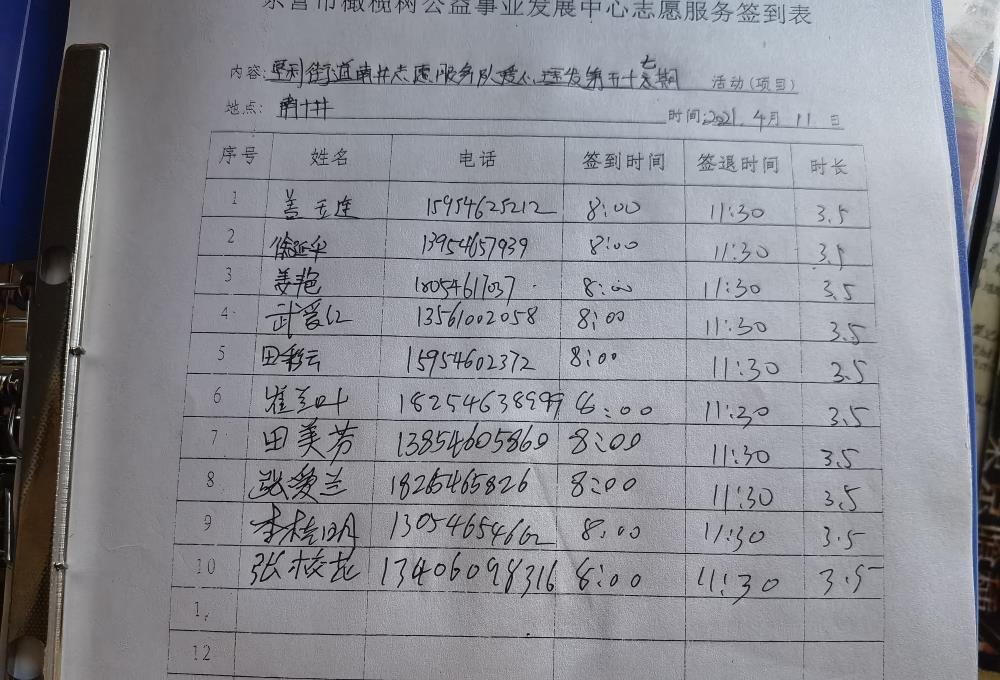 东营市橄榄树公益事业发展中心志愿服务签到表
内容:垦利街道南十井志愿服务队爱心理发第五十七期 活动(项目)
地点: 南十井 时间:2021.4月11日
序号 姓名 电话 签到时间 签退时间 时长
1 盖玉莲 15954625212 8:00 11:30 3.5
2 徐延华 13954657939 8:00 11:30 3.5
3 姜艳 18054617037 8:00 11:30 3.5
4 武爱红 13561002058 8:00 11:30 3.5
5 田彩云 15954602372 8:00 11:30 3.5
6 崔兰叶 18254638999 8:00 11:30 3.5
7 田美芳 13854605860 8:00 11:30 3.5
8 张爱兰 18265465826 8:00 11:30 3.5
9 李桂明 13054654662 8:00 11:30 3.5
10 张桂花 13406098316 8:00 11:30 3.5
1
12